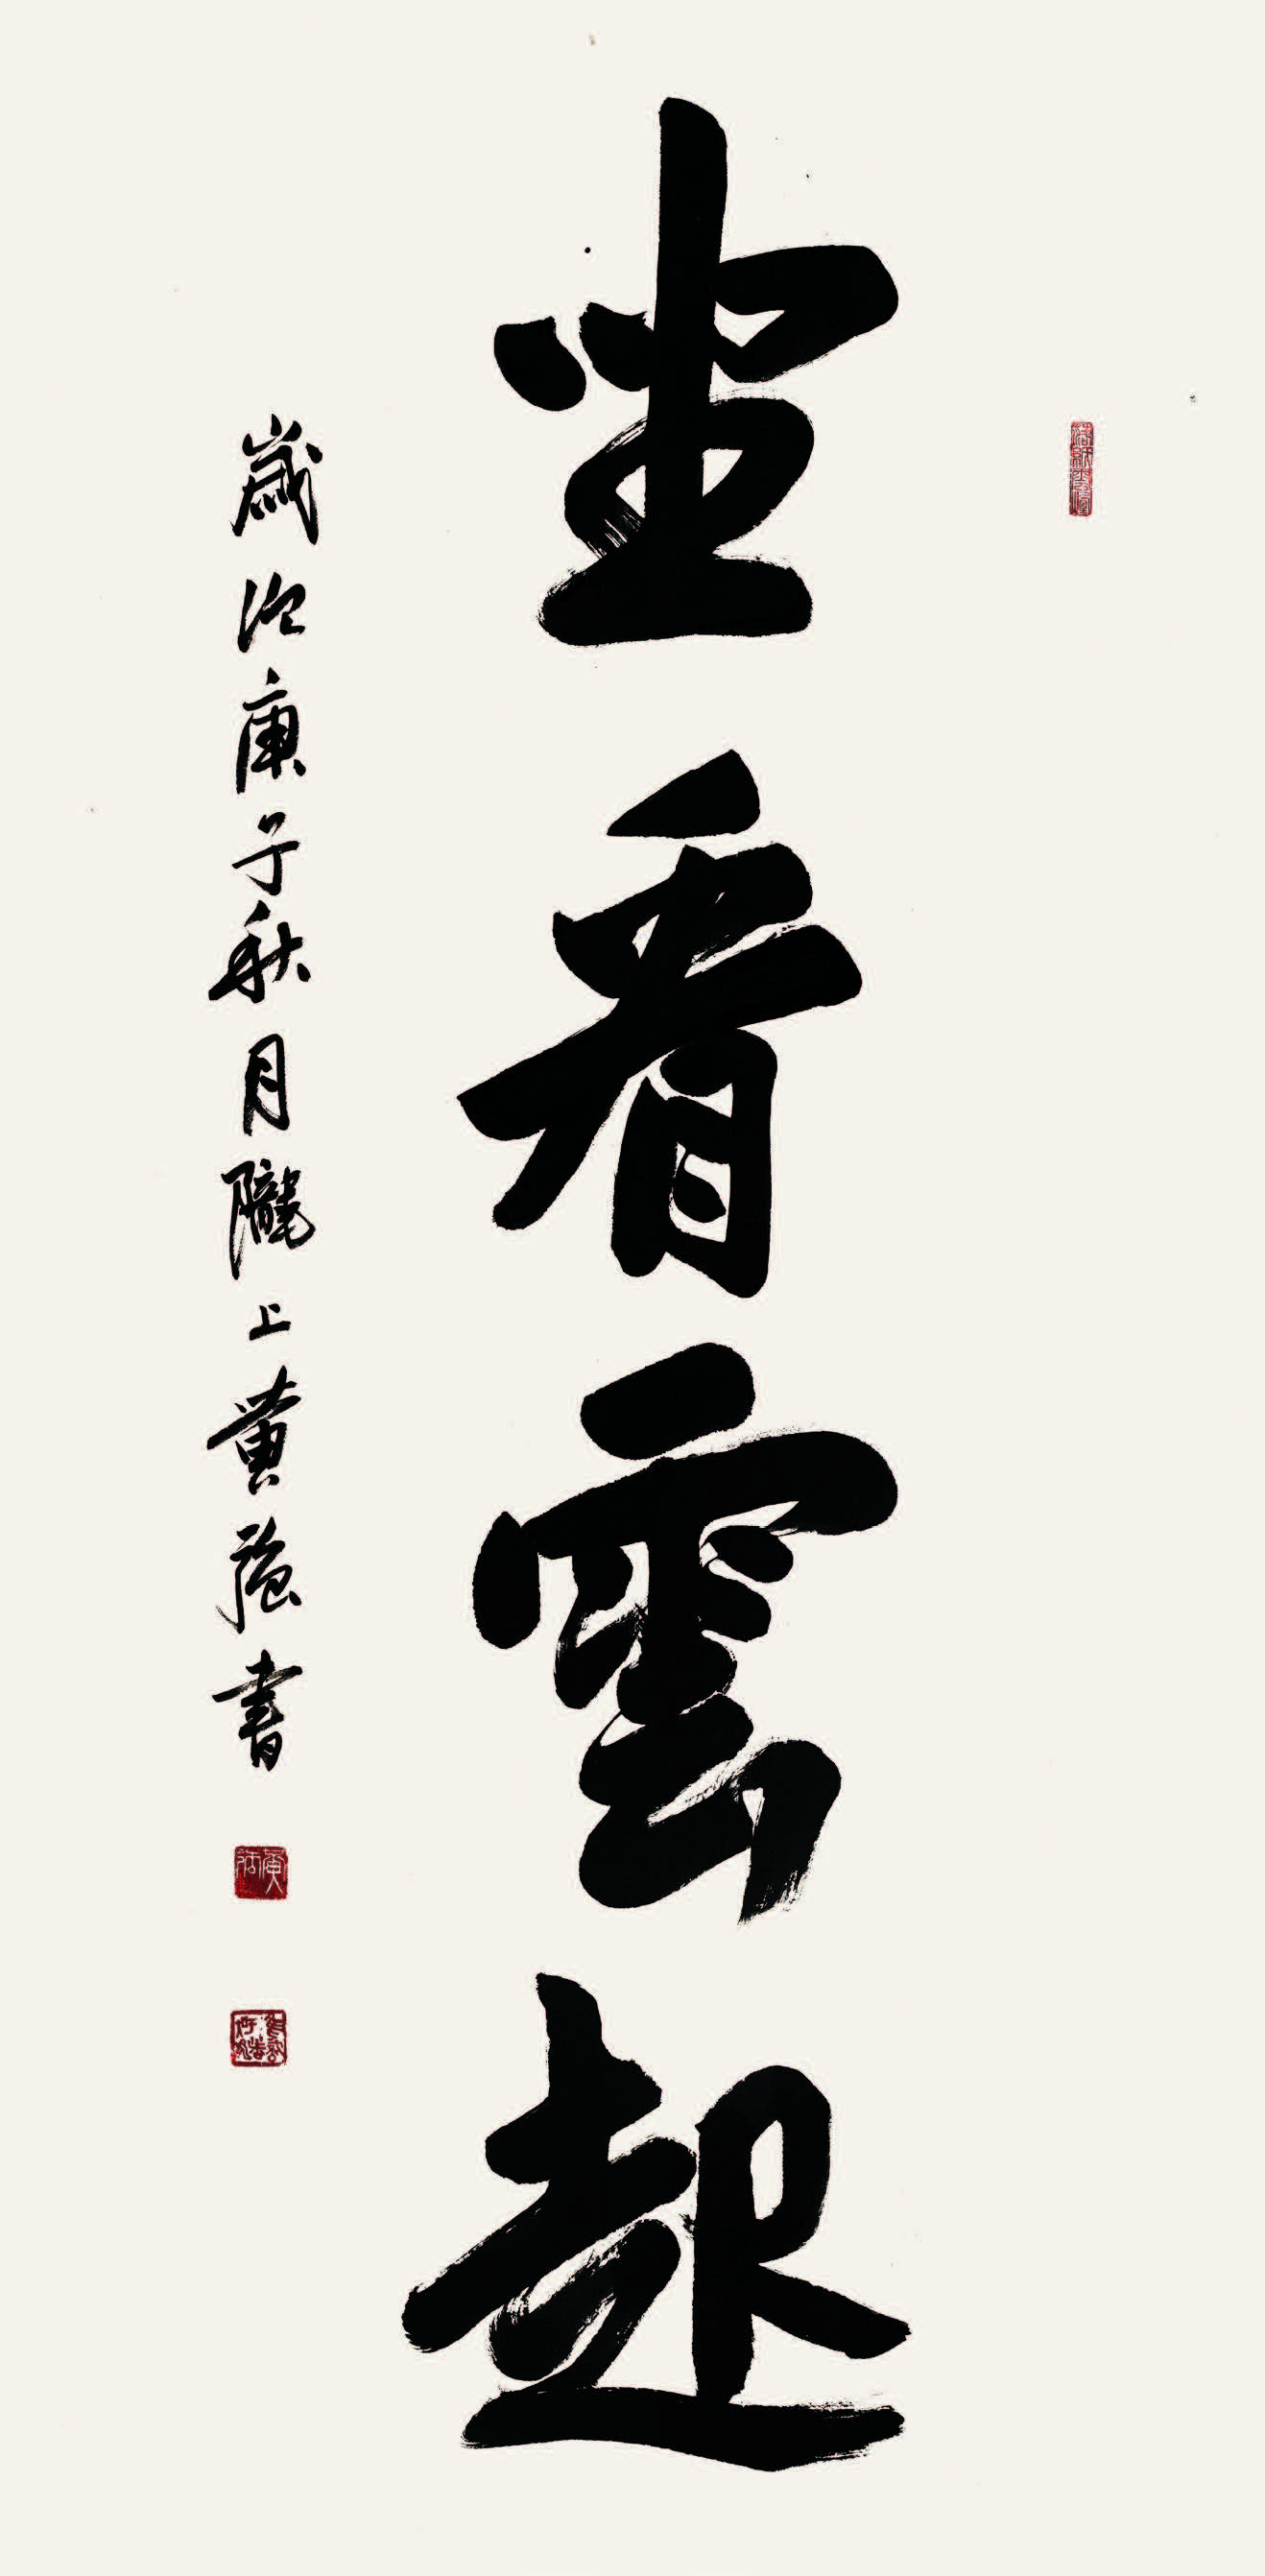 坐看雲起
歲次庚子秋月隴上黄强書